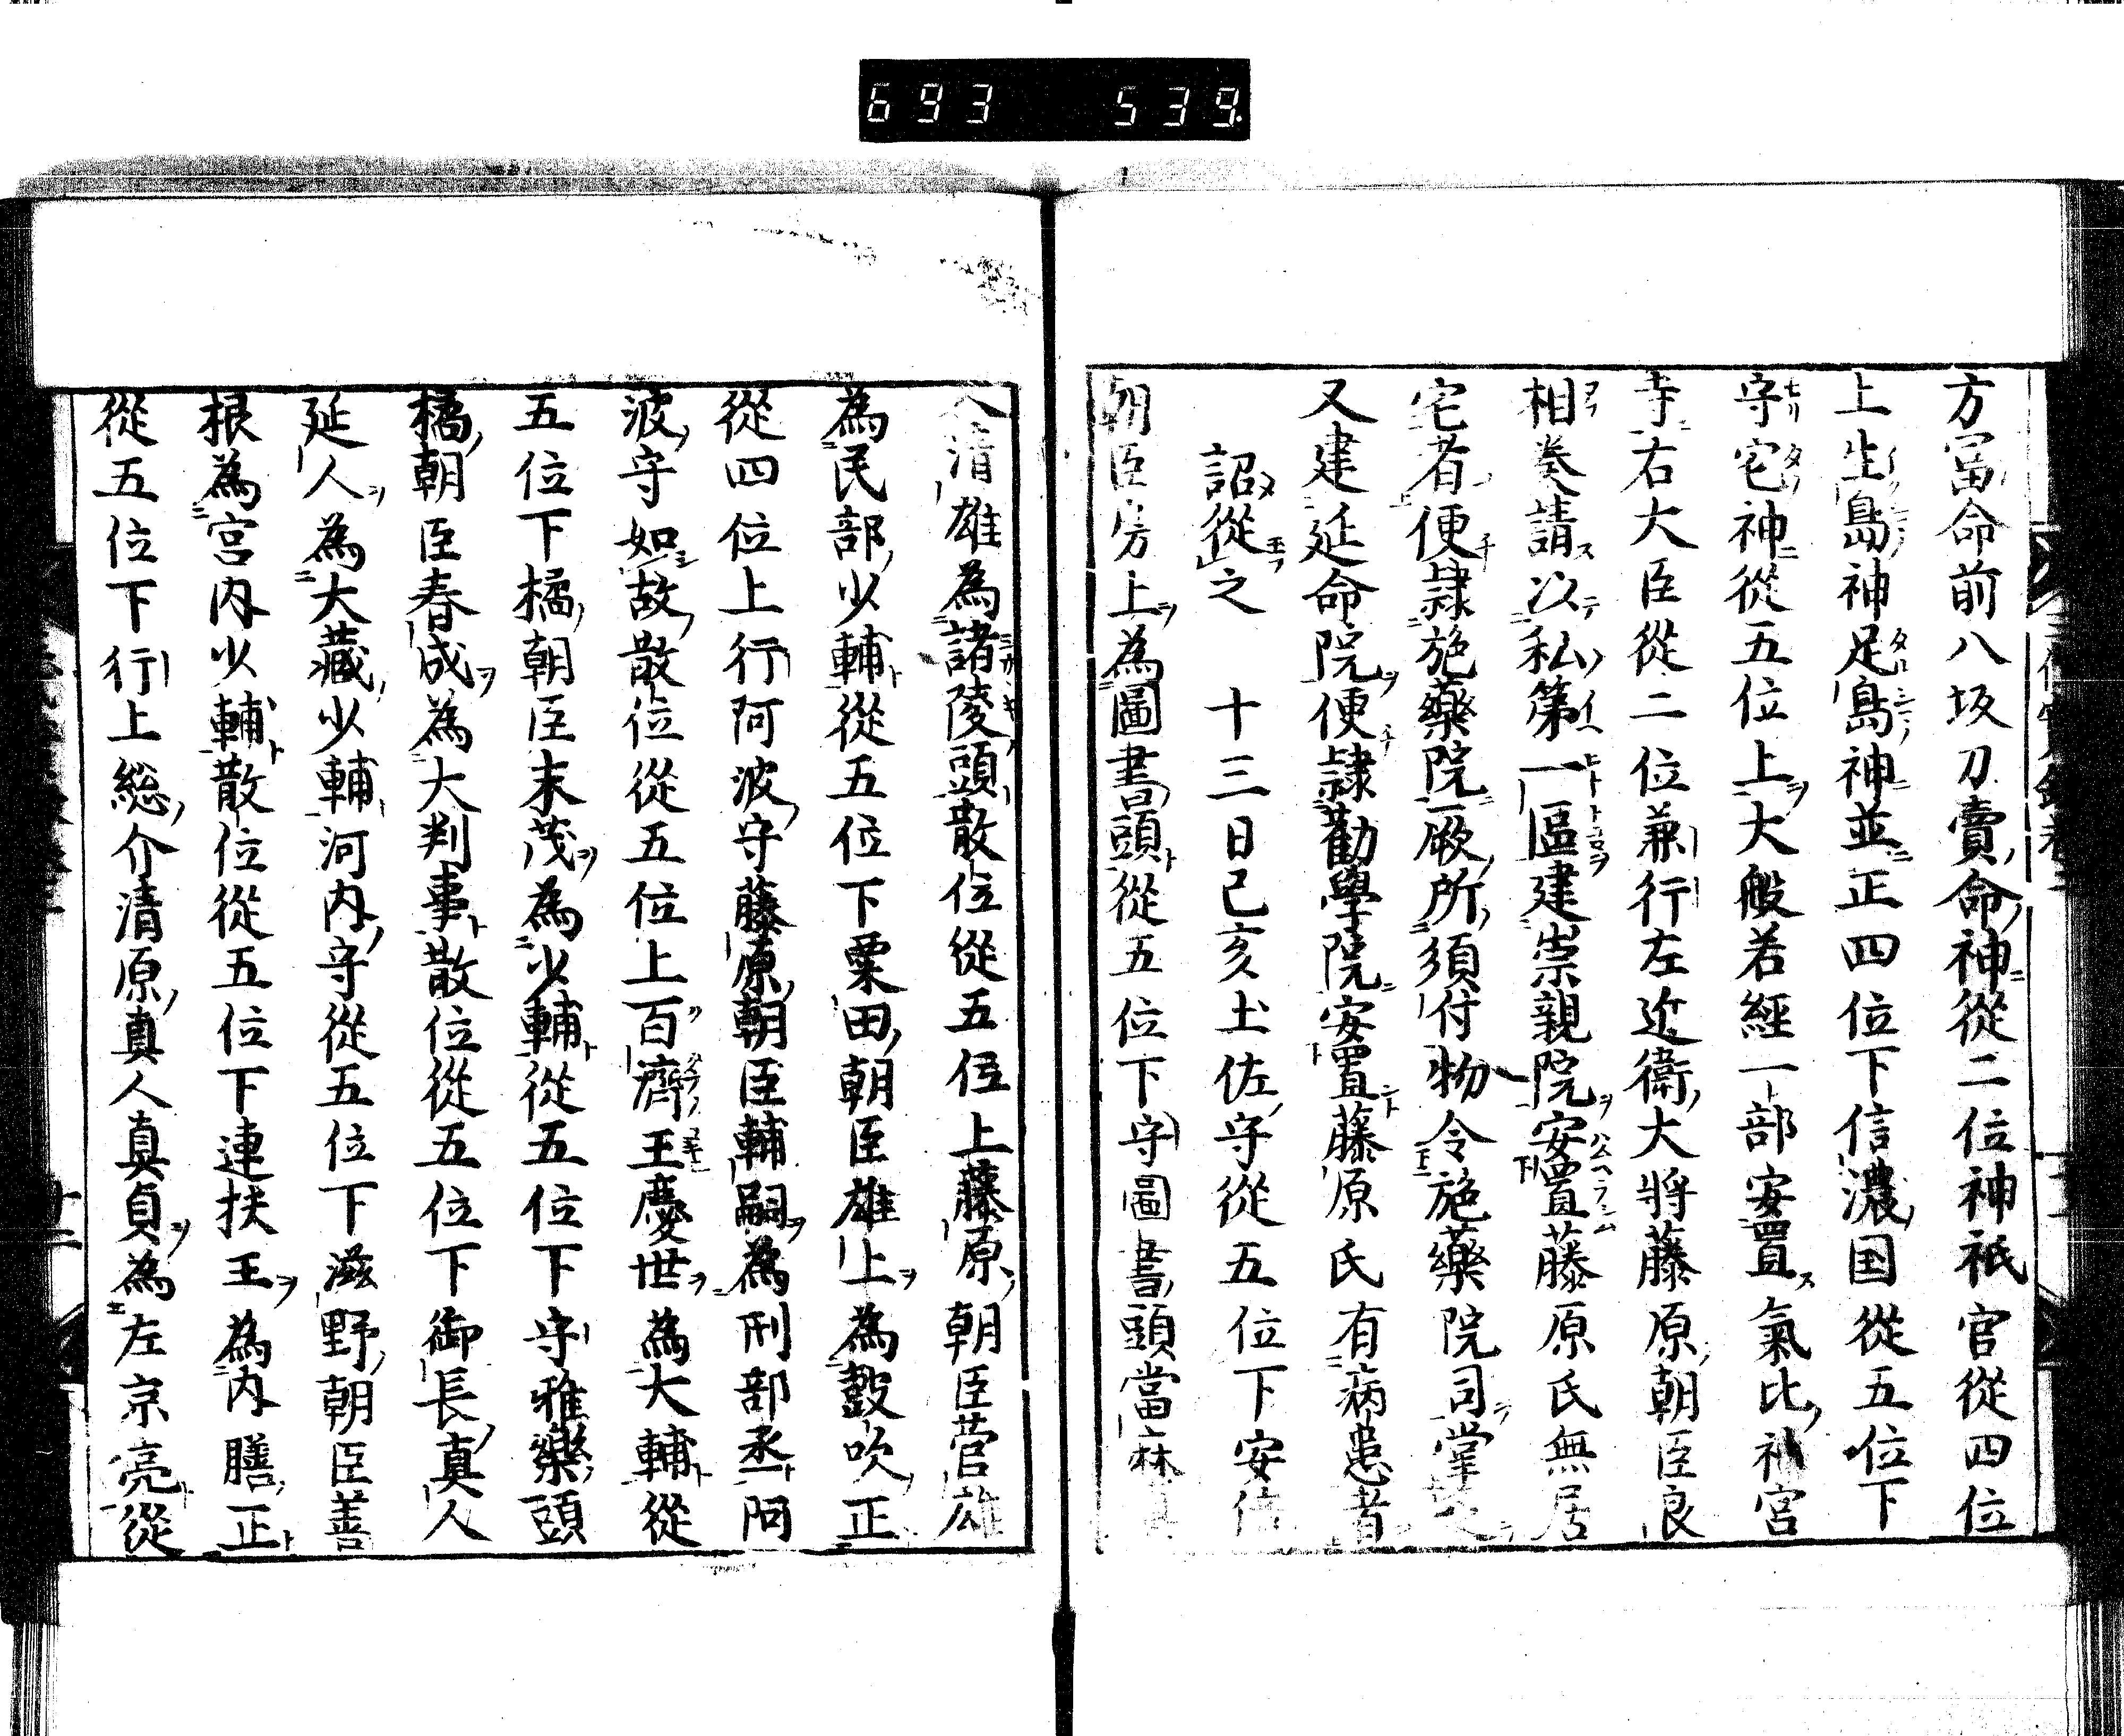 693 539
方冨命前八坂刀賣命神從二位神祇官從四位
上生島神足島神並正四位下信濃国從五位下
守宅神從五位上大般若經一部安置氣比神宮
寺右大臣從二位兼行左近衛大將藤原朝臣良
相奏請以私第一區建崇親院安置藤原氏無居
宅者便隷施藥院厥所須付物令施藥院司掌
又建延命院便隷勸學院安置藤原氏有病患者
詔從之 十三日己亥土佐守從五位下安倍
朝臣房上為圖書頭從五位下守圖書頭當麻真
人清雄為諸陵頭散位從五位上藤原朝臣菅雄
為民部少輔從五位下粟田朝臣雄上為鼓吹正
從四位上行阿波守藤原朝臣輔嗣為刑部丞阿
波守如故散位從五位上百濟王慶世為大輔從
五位下橘朝臣末茂為少輔從五位下守雅樂頭
橘朝臣春成為大判事散位從五位下御長真人
延人為大藏少輔河内守從五位下滋野朝臣善
根為宮内少輔散位從五位下連扶王為内膳正
從五位下行上総介清原真人真貞為左京亮從